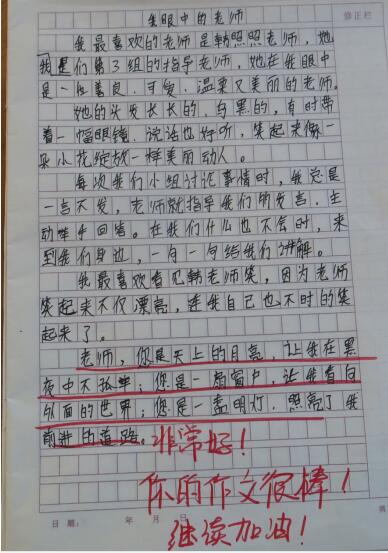 我眼中的老师
修正栏
我最喜欢的老师是韩照照老师，她
是们第3组的指导老师，她在我眼中
是一位善良、可爱、温柔又美丽的老师。
她的头发长长的，乌黑的，有时带
着一幅眼镜，说话也好听，笑起来像一
朵小花绽放一样美丽动人。
每次我们小组讨论事情时，我总是
一言不发，老师就指导我们的发言，主
动举手回答。在我们什么也不会时，来
到我们身边，一句一句给我们讲解。
我最喜欢看见韩老师笑，因为老师
笑起来不仅漂亮，连我自己也不时的笑
起来了。
老师，您是天上的月亮，让我在黑
夜中不孤单；您是一扇窗户，让我看白
外面的世界；您是一盏明灯，照亮了我
前进的道路。非常好！
你的作文很棒！
日期： 年 月 日
继续加油！